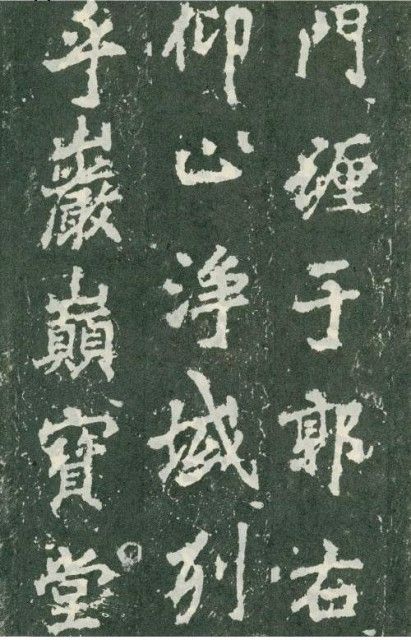 門躔于郭右
仰止淨域列
乎巖巔寶堂